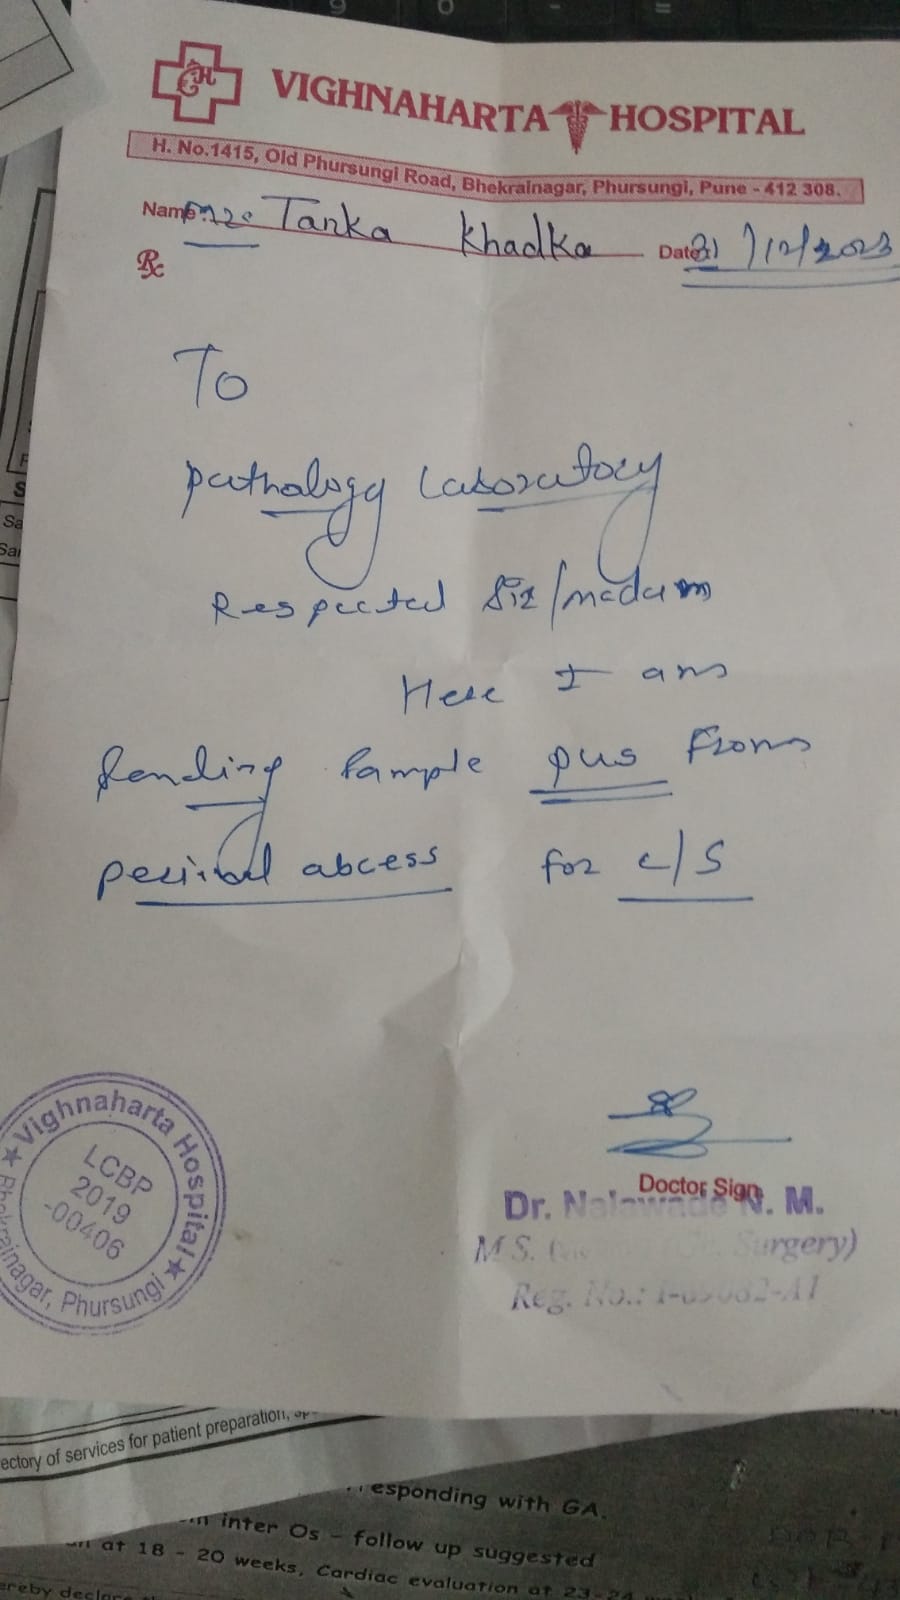 VIGHNAHARTA HOSPITAL
H. No.1415, Old Phursungi Road, Bhekrainagar, Phursungi, Pune - 412 308.
Name: Tanka Khadka Date: 31/12/2023
Rx
To
Pathology Laboratory
Respected Sir/madam
Here I am
Sending Sample pus From
abcess for c/s
Vighnaharta Hospital
Bhekrainagar, Phursungi
LCBP
2019
-00406
Doctor Sign
Dr. Nalawade N. M.
M.S. Surgery)
Reg. No.:
ectory of services for patient preparation,
esponding with GA.
inter Os - follow up suggested
at 18 - 20 weeks, Cardiac evaluation at 23-24
ereby decla